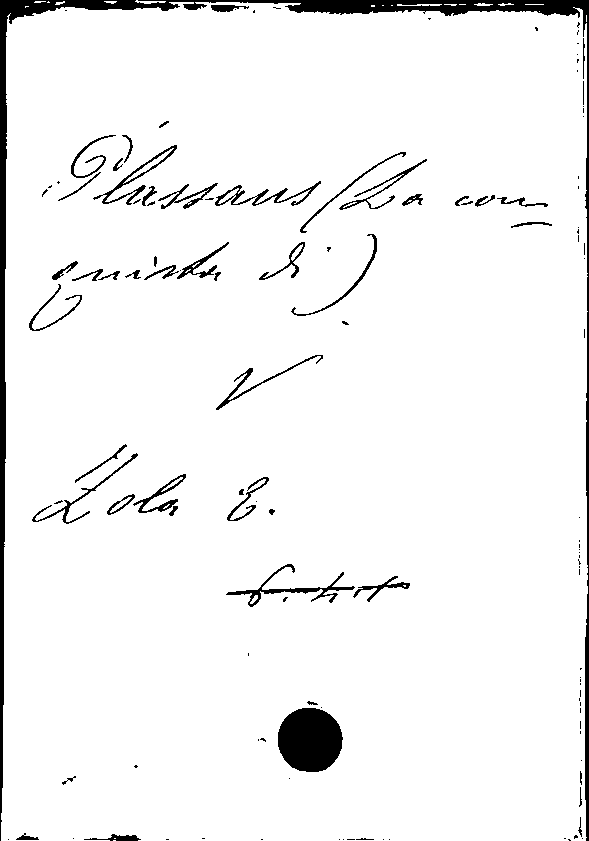 Plassans (La con-
quista di)
V
Zola E.